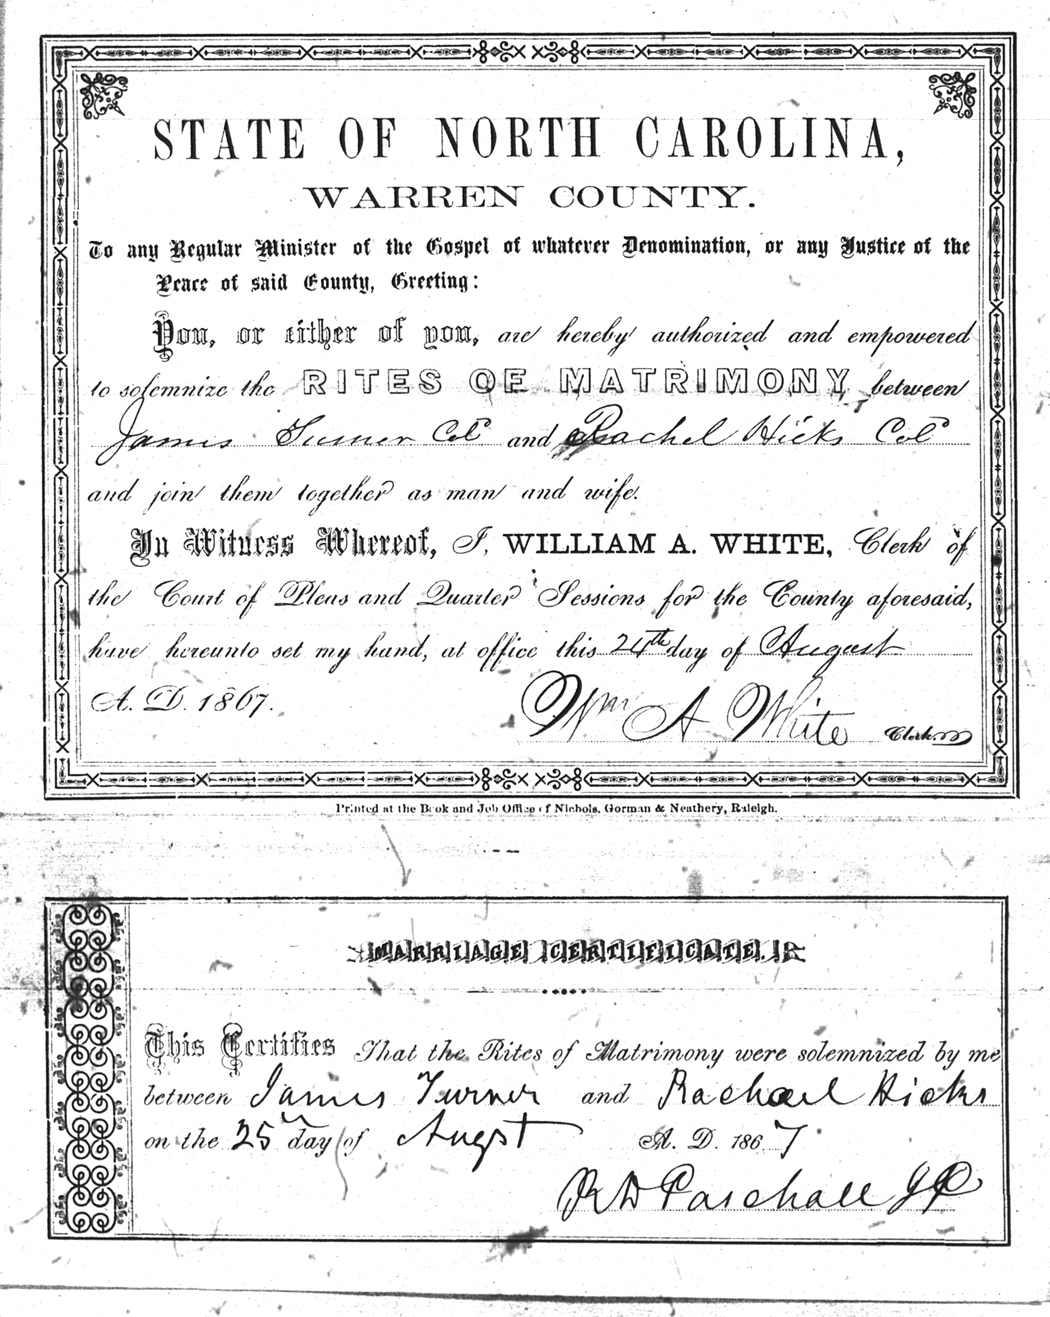 STATE OF NORTH CAROLINA,
WARREN COUNTY.
To any Regular Minister of the Gospel of whatever Denomination, or any Justice of the
Peace of said County, Greeting:
You, or either of you, are hereby authorized and empowered
to solemnize the RITES OF MATRIMONY between
James Turner Cold and Rachel Hicks Cold
and join them together as man and wife.
In Witness Whereof, I, WILLIAM A. WHITE, Clerk of
the Court of Pleas and Quarter Sessions for the County aforesaid,
have hereunto set my hand, at office this 24th day of August
A. D. 1867.
Wm A White Clerk
Printed at the Book and Job Office of Nichols, Gorman & Neathery, Raleigh.
MARRIAGE CERTIFICATE.
This Certifies That the Rites of Matrimony were solemnized by me
between James Turner and Rachael Hicks
on the 25 day of Augst A. D. 1867
R D Paschall JP